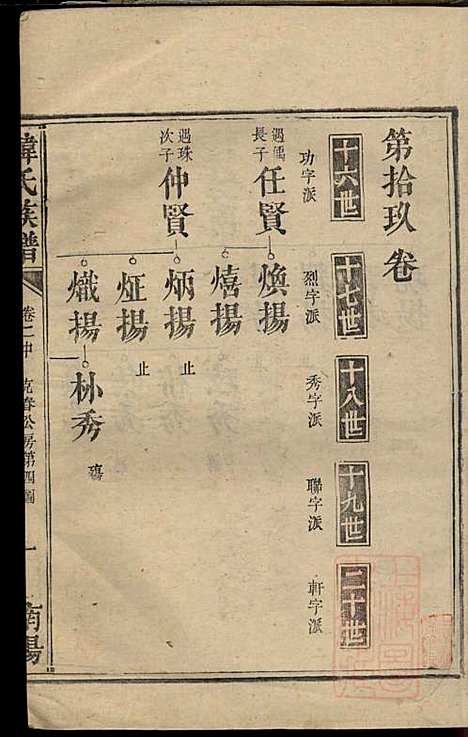 第拾玖卷
十六世
十七世
十八世
十九世
二十世
功字派
烈字派
秀字派
聯字派
軒字派
遇儒
長子
任賢
煥揚
熺揚
遇珠
次子
仲賢
炳揚
止
炡揚
止
熾揚
林秀
殤
韓氏族譜
卷二中
克春公房第四圖
一
南陽